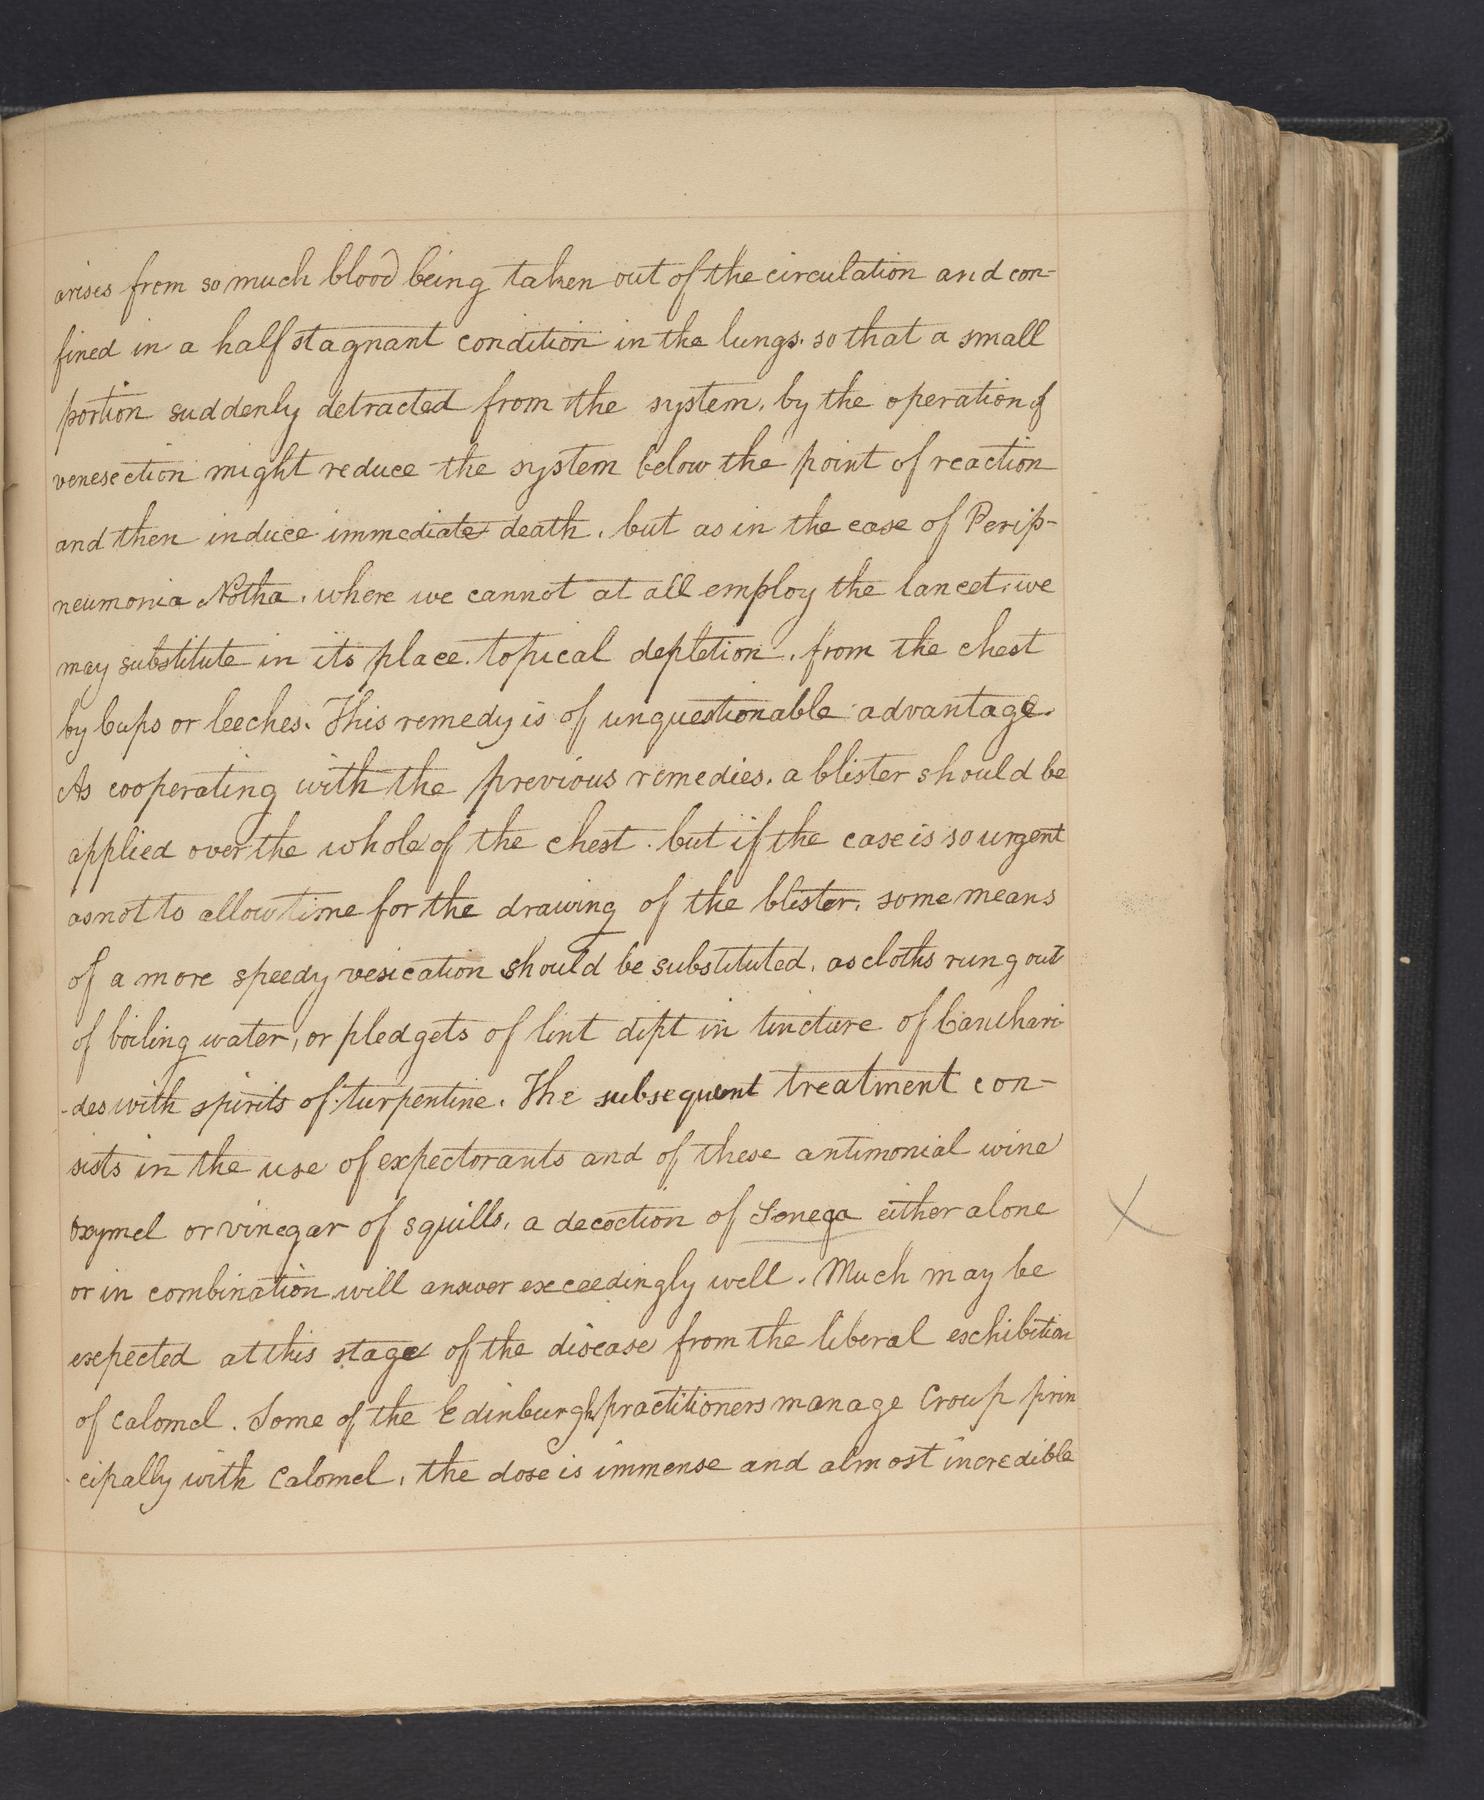 arises from so much blood being taken out of the circulation and con-
fined in a half stagnant condition in the lungs. so that a small
portion suddenly detracted from the system, by the operation of
venesection might reduce the system below the point of reaction
and then induce immediate death, but as in the case of Perip-
neumonia Notha, where we cannot at all employ the lancet, we
may substitute in its place. topical depletion, from the chest
by Cups or leeches. This remedy is of unquestionable advantage.
As cooperating with the previous remedies, a blister should be
applied over the whole of the chest. but if the case is so urgent
as not to allow time for the drawing of the blister, some means
of a more speedy vesication should be substituted, as cloths rung out
of boiling water, or pledgets of lint dipt in tincture of Canthari-
-des with spirits of turpentine. The subsequent treatment con-
sists in the use of expectorants and of these antimonial wine
oxymel or vinegar of squills, a decoction of Senega either alone
or in combination will answer exceedingly well. Much may be
expected at this stage of the disease from the liberal exhibition
of calomel. Some of the Edinburgh practitioners manage Croup prin
-cipally with Calomel, the dose is immense and almost incredible